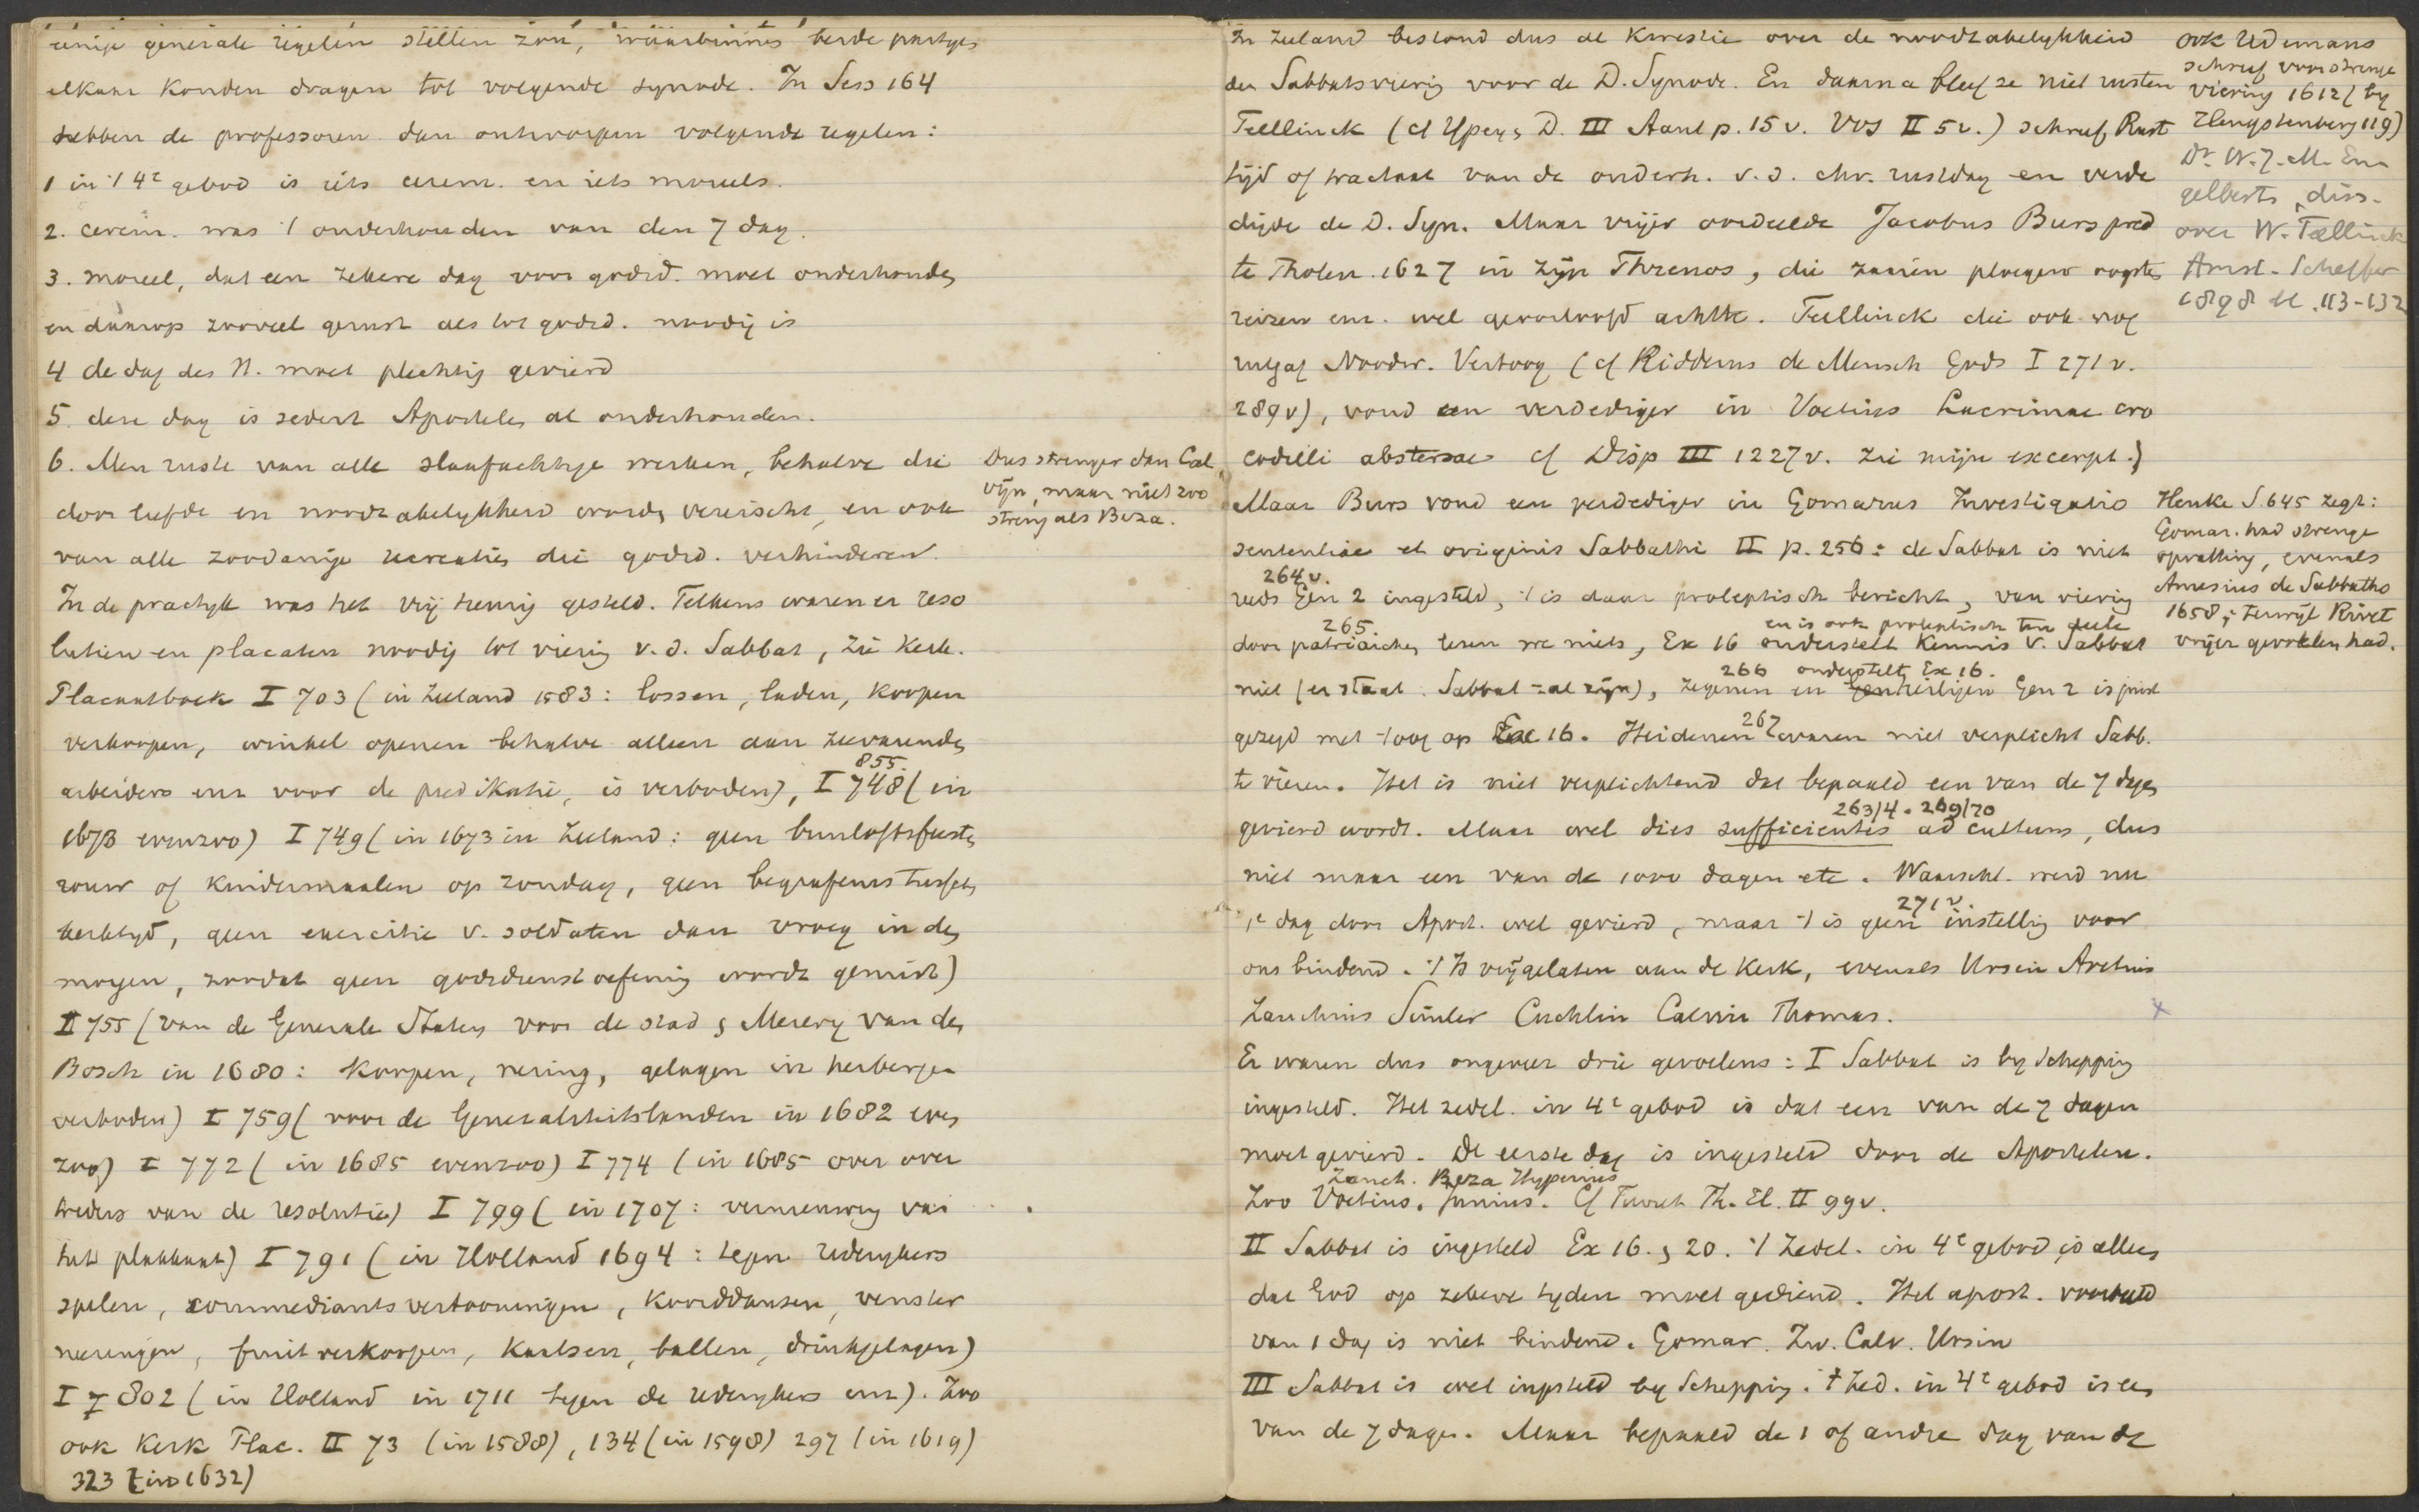 eenige generale regelen stellen zou, waarbinnen beide partyen
elkaar konden dragen tot volgende synode. In Sess 164
hebben de professoren dan ontworpen volgende regelen:
1 in 't 4e gebod is iets cerem. en iets moreels.
2. cerem. was 't onderhouden van den 7 dag.
3. moreel, dat een zekere dag voor godsd. moet onderhouden
en daarop zooveel gerust als tot godsd. noodig is
4 de dag des H. moet plechtig gevierd
5 deze dag is sedert Apostelen al onderhouden.
6. Men ruste van alle slaafachtige werken, behalve die
door liefde en noodzakelykheid worden vereischt, en ook
van alle zoodanige recreaties die godsd. verhinderen.
Dus strenger dan Cal
vijn, maar niet zoo
streng als Beza.
In de practyk was het vrij treurig gesteld. Telkens waren er reso
lutien en placaten noodig tot viering v. d. Sabbat, zie Kerk.
Placaatboek I 703 (in Zeeland 1583: lossen, laden, koopen
verkoopen, winkel openen behalve alleen aan zeevarenden
arbeiders enz voor de predikatie, is verboden), I 748 (in
855.
1673 evenzoo) I 749 (in 1673 in Zeeland: geen bruiloftsfeesten
rouw of kindermaalen op zondag, geen begrafenis tusschen
kerktyd, geen exercitie v. soldaten dan vroeg in den
morgen, zoodat geen godsdienstoefening wordt gemist)
II 755 (van de Generale Staten voor de stad & Meiery van den
Bosch in 1680: koopen, nering, gelagen in herbergen
verboden) I 759 (voor de Generaliteitslanden in 1682 even
zoo) I 772 (in 1685 evenzoo) I 774 (in 1685 over over
treders van de resolutie) I 799 (in 1707: vernieuwing van
het plakkaat) I 791 (in Holland 1694: tegen rederykers
spelen, commediants vertooningen, koorddansen, venster
neeringen, fruit verkoopen, kaatsen, ballen, drinkgelagen)
I 802 (in Holland in 1711 tegen de rederykers enz). Zoo
ook Kerk Plac. II 73 (in 1588), 134 (in 1598) 297 (in 1619)
323 (in 1632)
In Zeeland bestond dus al kwestie over de noodzakelykheid
der Sabbatsviering voor de D. Synode. En daarna bleef ze niet rusten
Teellinck (cf Ypey & D. III Aant p. 15 v. Vos II 5 v.) schreef Rust
tijd of tractaat van de onderh. v. d. chr. rustdag en verde
digde de D. Syn. Maar vrijer oordeelde Jacobus Burs pred
te Tholen 1627 in zijn Threnos, die zaaien ploegen oogsten
reizen enz. wel geoorloofd achtte. Teellinck die ook nog
uitgaf Noodw. Vertoog (cf Ridderus de Mensch Gods I 271 v.
289 v), vond een verdediger in Voetius Lacrimae cro
codilli abstersae cf Disp III 1227 v. zie mijn excerpt.)
ook Udemans
schreef voor strenge
viering 1612 (by
Hengstenberg 119)
Dr W. J. M. En
gelberts, diss.
over W. Teellinck
Amst. Scheffer
1898 bl. 113-132
Maar Burs vond een verdediger in Gomarus Investigatio
sententiae et originis Sabbathi II p. 256: de Sabbat is niet
264 v.
reeds Gen 2 ingesteld, 't is daar proleptisch bericht, van viering
265
en is ook proleptisch ten deele
door patriarchen lezen we niets, Ex 16 onderstelt kennis v. Sabbat
266 onderstelt Ex 16.
niet (er staat Sabbat zal zijn), zegenen en heiligen Gen 2 is juist
267
gezegd met 't oog op Ex 16. Heidenen waren niet verplicht Sabb.
te vieren. Het is niet verplichtend dat bepaald een van de 7 dagen
263/4. 269/70
gevierd wordt. Maar wel dies sufficientes ad cultum, dus
niet maar een van de 1000 dagen etc. Waarschl. werd nu
271 v.
1e dag door Apost. wel gevierd, maar 't is geen instelling voor
ons bindend. 't Is vrijgelaten aan de kerk, evenals Ursin Aretius
Zanchius Simler Cuchlin Calvin Thomas.
Henke S. 645 zegt:
Gomar. had strenge
opvatting, evenals
Amesius de Sabbatho
1658; terwijl Rivet
vrijer gevoelen had.
x
Er waren dus ongeveer drie gevoelens: I Sabbat is by schepping
ingesteld. Het zedel. in 4e gebod is dat een van de 7 dagen
moet gevierd. De eerste dag is ingesteld door de Apostelen.
Zanch. Beza Hyperius
Zoo Voetius. Junius. Cf Turret Th. El. II 99 v.
II Sabbat is ingesteld Ex 16. & 20. 't Zedel. in 4e gebod is alleen
dat God op zekere tyden moet gediend. Het apost. voorbeeld
van 1 dag is niet bindend. Gomar. Zw. Calv. Ursin
III Sabbat is wel ingesteld by Schepping. 't Zed. in 4e gebod is een
van de 7 dagen. Maar bepaald de 1 of andre dag van de